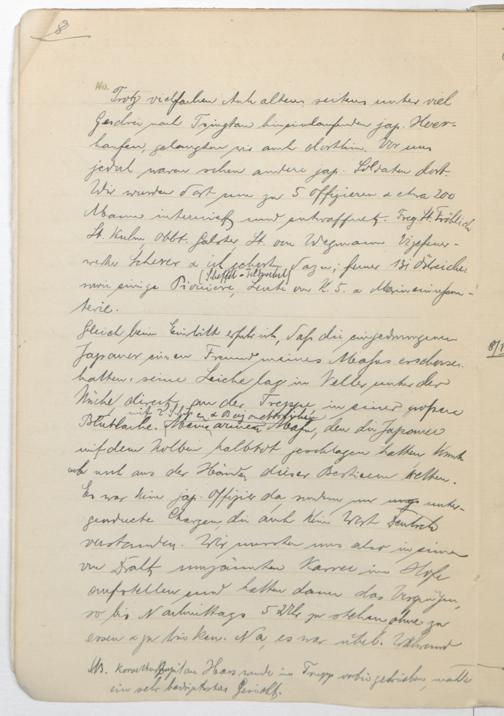 8
No.
Trotz vielfachen Anhaltens seitens unter viel
Geschrei nach Tsingtau hineinlaufenden jap. Heer-
haufen, gelangten wir auch dorthin. Vor uns
jedoch waren schon andere jap. Soldaten dort.
Wir wurden dort nun zu 5 Offizieren & etwa 200
Mann interniert und entwaffnet. Freg. Lt. Fröhlich
Lt. Kuhn, Obbt. Galster, Lt. von Wegmann Vizefeuer-
werker Scherer & ich
dazu; ferner 131 Östreicher
sowie einige Pioniere, Leute von K. S. & Marineinfan-
terie.
Gleich beim Eintritt erfuhr ich, daß die eingedrungenen
Japaner einen Freund meines Mafus erschossen
hatten; seine Leiche lag im Keller unter der
Küche direkt an der Treppe in einer großen
Blutlache. Meinen armen Mafu, den die Japaner
mit dem Kolben halbtot geschlagen hatten konnte
ich noch aus der Hände dieser Bestien retten.
Es war kein jap. Offizier da sondern nur unter-
geordnete Chargen, die auch kein Wort Deutsch
verstanden. Wir mussten uns also in einem
von Draht umzäunten Karree im Hofe
aufstellen und hatten dann das Vergnügen,
so bis Nachmittags 5 Uhr zu stehen ohne zu
essen & zu trinken. Na, es war übel. Während
NB. Korvettenkapitän Hass wurde im Trupp vorbeigetrieben, machte
ein sehr bedripstes Gesicht.
8/1